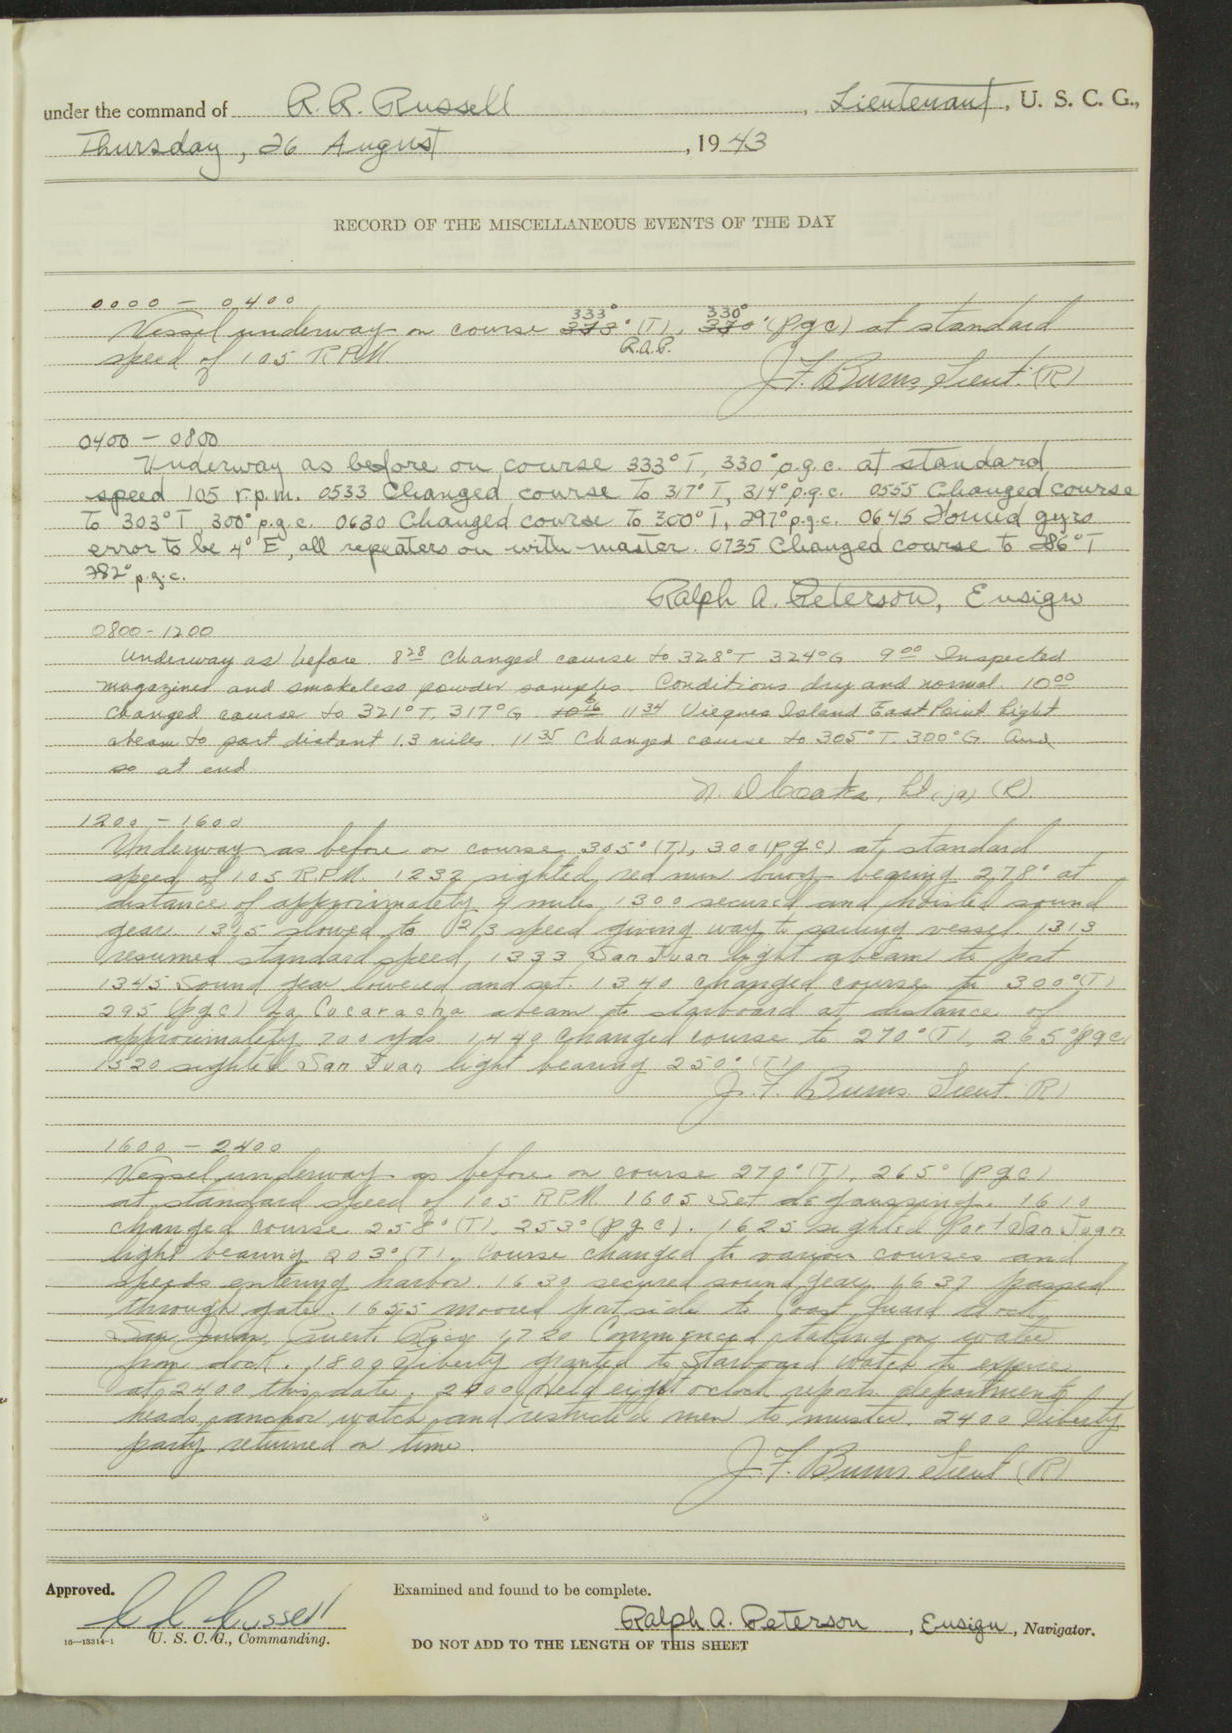 under the command of R. R. Russell, Lieutenant, U. S. C. G.,
Thursday, 26 August, 1943
RECORD OF THE MISCELLANEOUS EVENTS OF THE DAY
0000 - 0400
333° 330°
Vessel underway on course 373° (T), 370° (pgc) at standard
speed of 105 RPM. R.A.P.
J.F. Burns, Lieut. (R)
0400 - 0800
Underway as before on course 333° T, 330° p.g.c. at standard
speed 105 r.p.m. 0533 Changed course to 317° T, 314° p.g.c. 0555 Changed course
to 303° T 300° p.g.c. 0630 Changed course to 300° T, 297° p.g.c. 0645 Found gyro
error to be 4° E, all repeaters on with master. 0735 Changed course to 286° T
282° p.g.c.
Ralph A. Peterson, Ensign
0800 - 1200
Underway as before. 8 28 Changed course to 328° T 324° G 9 00 Inspected
magazines and smokeless powder samples. Conditions dry and normal. 10 00
Changed course to 321° T. 317° G 11 34 Vieques Island East Point Light
abeam to port distant 1.3 miles. 11 35 Changed course to 305° T. 300° G. And
so at end
Lt (jg) (R)
1200 - 1600
Underway as before on course 305° (T), 300 (pgc) at standard
speed of 105 RPM. 1232 sighted red nun buoy bearing 278° at
distance of approximately 4 miles. 1300 secured and hoisted sound
gear. 1305 slowed to 2/3 speed giving way to sailing vessel. 1313
resumed standard speed, 1333 San Juan light abeam to port
1345 Sound gear lowered and set. 1340 changed course to 300° (T)
295 (pgc) La Cucaracha abeam to starboard at distance of
approximately 700 yds 1440 Changed course to 270° (T), 265° pgc
1520 sighted San Juan light bearing 250° (T)
J. F. Burns Lieut. (R)
1600 - 2400
Vessel underway as before on course 270° (T), 265° (pgc)
at standard speed of 105 RPM. 1605 Set degaussing. 1610
changed course 258° (T), 253° (pgc). 1625 sighted Port San Juan
light bearing 203° (T). Course changed to various courses and
speeds entering harbor. 1630 secured sound gear, 1637 passed
through gate. 1655 moored port side to Coast Guard dock
San Juan, Puerto Rico 1720 Commenced taking on water
from dock. 1800 Liberty granted to Starboard watch to expire
at 2400 this date. 2000 Held eight oclock reports department
heads, anchor watch and restricted men to muster. 2400 liberty
party returned on time.
J. F. Burns Lieut (R)
Approved. Examined and found to be complete.
Ralph A. Peterson, Ensign, Navigator.
16—13314-1 U. S. C. G., Commanding.
DO NOT ADD TO THE LENGTH OF THIS SHEET